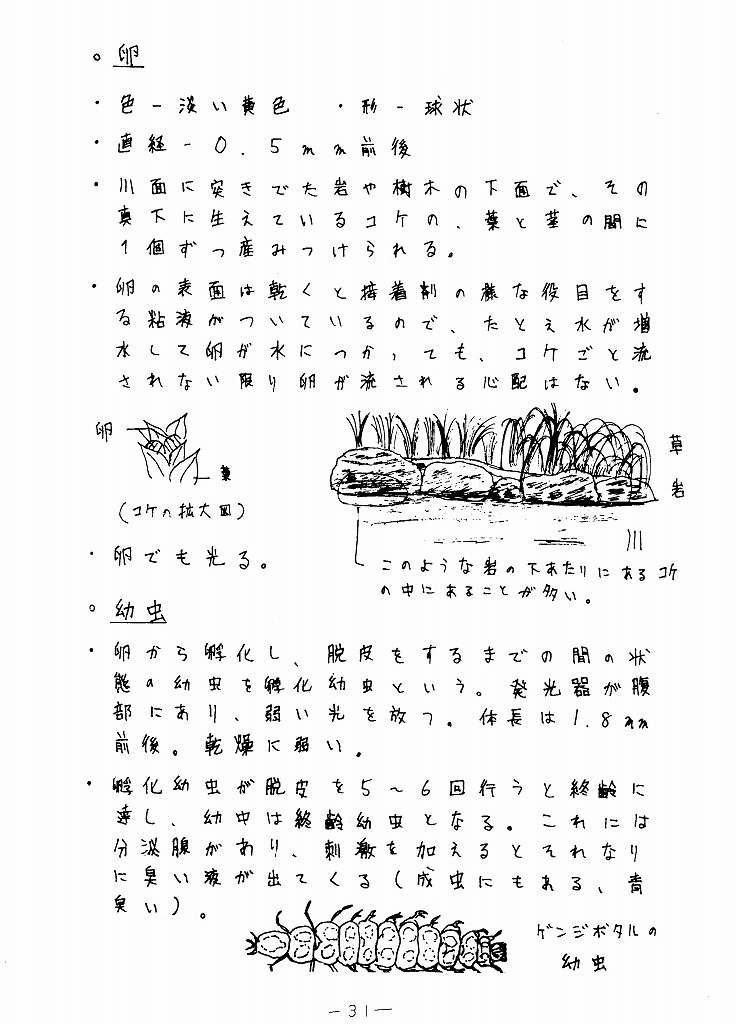 ○ 卵
・色－淡い黄色　・形－球状
・直経－0.5mm前後
・川面に突きでた岩や樹木の下面で、その
真下に生えているコケの、葉と茎の間に
1個ずつ産みつけられる。
・卵の表面は乾くと接着剤の様な役目をす
る粘液がついているので、たとえ水が増
水して卵が水につかっても、コケごと流
されない限り卵が流される心配はない。
卵
葉
(コケの拡大図)
草
岩
川
このような岩の下あたりにあるコケ
の中にあることが多い。
・卵でも光る。
○ 幼虫
・卵から孵化し、脱皮をするまでの間の状
態の幼虫を孵化幼虫という。発光器が腹
部にあり、弱い光を放つ。体長は1.8mm
前後。乾燥に弱い。
・孵化幼虫が脱皮を5～6回行うと終齢に
達し、幼虫は終齢幼虫となる。これには
分淡腺があり、刺激を加えるとそれなり
に臭い液が出てくる(成虫にもある、青
臭い)。
ゲンジボタルの
幼虫
－31－